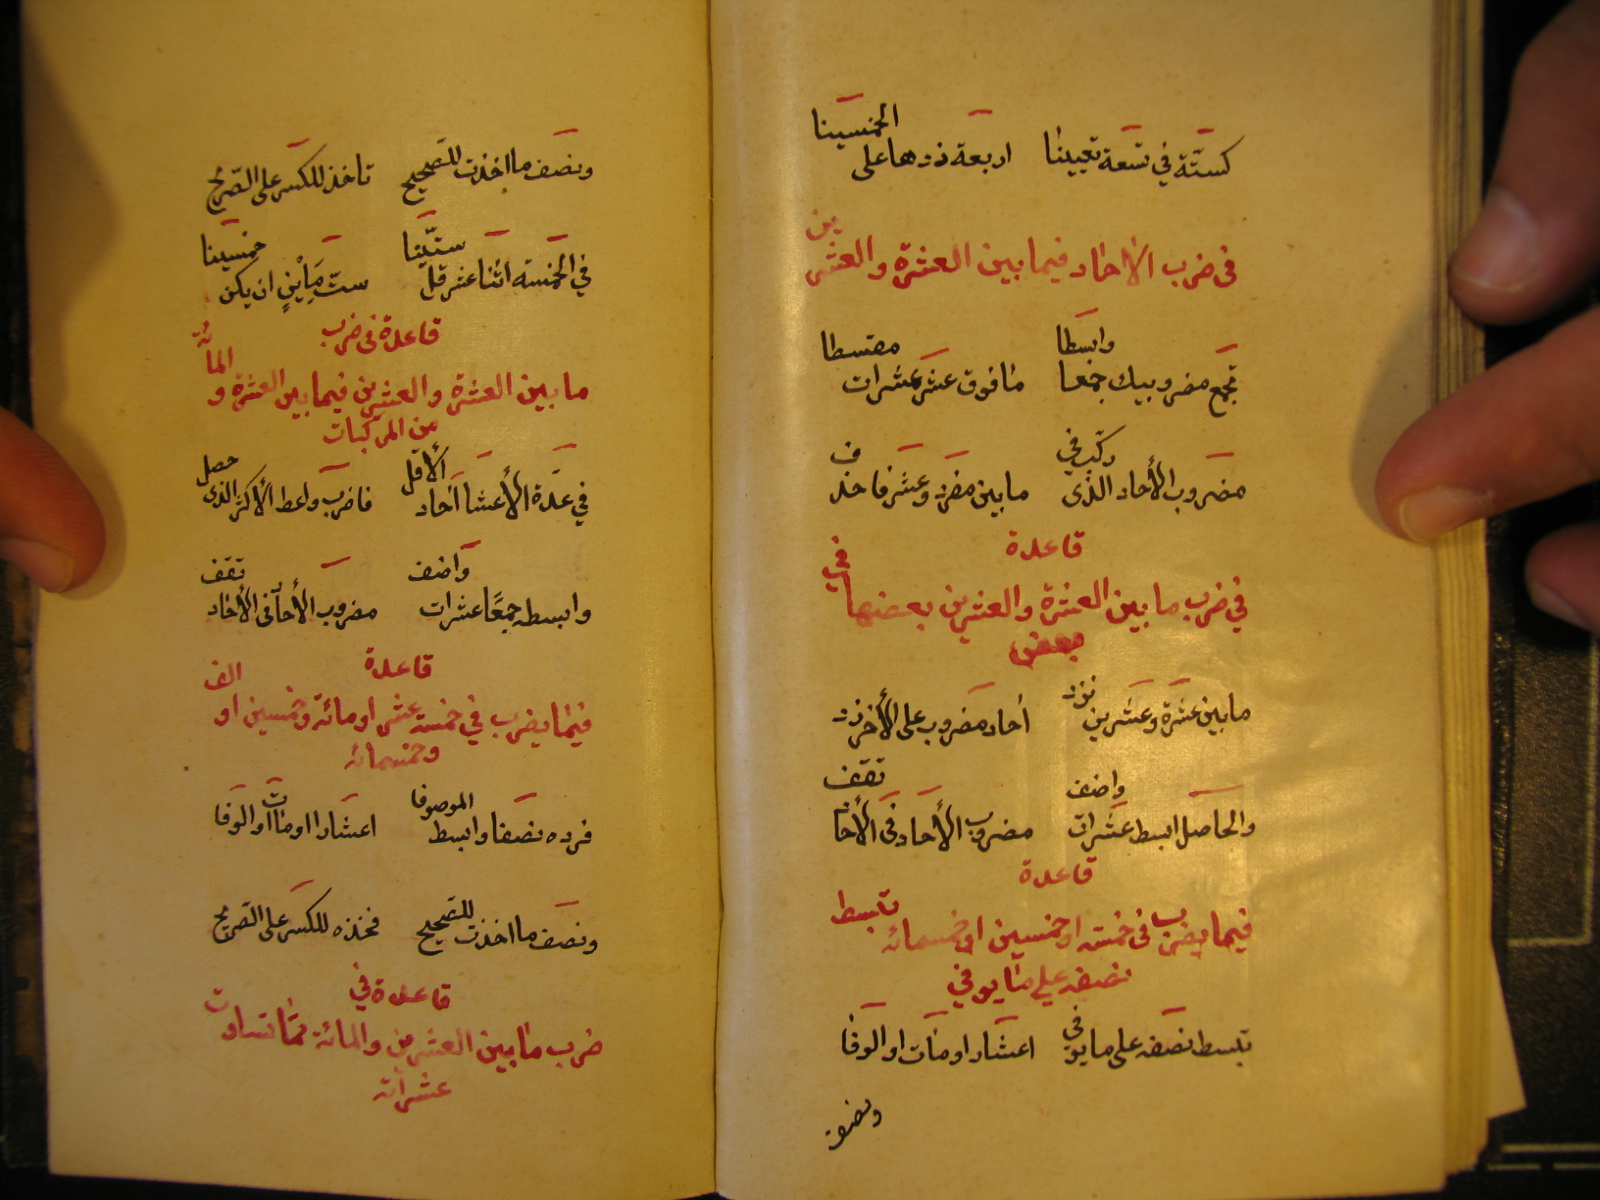 كستّة في تسعة تعيينا اربعة زدها على الخمسينا
في ضرب الاحاد فيما بين العشرة والعشرين
تجمع مضروبيك جمعا وابسطا ما فوق عشر عشرات مقسطا
مضروب الأحاد الذى ركب في ما بين مفرد وعشر فاحذف
قاعدة
في ضرب ما بين العشرة والعشرين بعضها في
بعض
ما بين عشرة وعشرين تزد أحاد مضروب على الأخر زد
والحاصل ابسط عشرات واضف مضروب الأحاد في الأحاد تقف
قاعدة
فيما يضرب في خمسة او خمسين او خمسمائة تبسط
نصفه على ما يوفي
تبسط نصفه على ما يوفي اعشارا او مأت او الوفا
ونصف
ونصف ما اخذت للصّحيح تاخذ للكسر على الصّريح
في الخمسة اثنا عشر قل ستّينا ستّ مِأين ان يكن خمسينا
قاعدة في ضرب
ما بين العشرة والعشرين فيما بين العشرة والمائة
من المركبات
في عدّة الأعشا آحاد الأقل فاضرب واعط الأكثر الذى حصل
وابسطه جمعًا عشرات واضف مضروب الأحاد في الأحاد تقف
قاعدة
فيما يضرب في خمسة عشر او مائة وخمسين او الف
وخمسمائة
فزده نصفا وابسط الموصوفا اعشارا او مات او الوفا
ونصف ما اخذت للصّحيح فخذه للكسر على الصّريح
قاعدة في
ضرب ما بين العشرين والمائة مما تساوت
عشراته